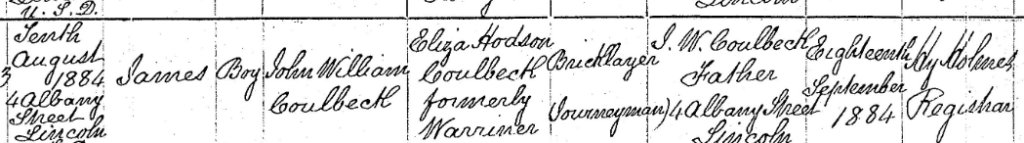 U.S.D.
Tenth
August
1884
4 Albany
Street
Lincoln
James
Boy
John William
Coulbeck
Eliza Hodson
Coulbeck
formerly
Warriner
Bricklayer
(Journeyman)
J. W. Coulbeck
Father
4 Albany Street
Lincoln
Eighteenth
September
1884
Hy Holmes
Registrar